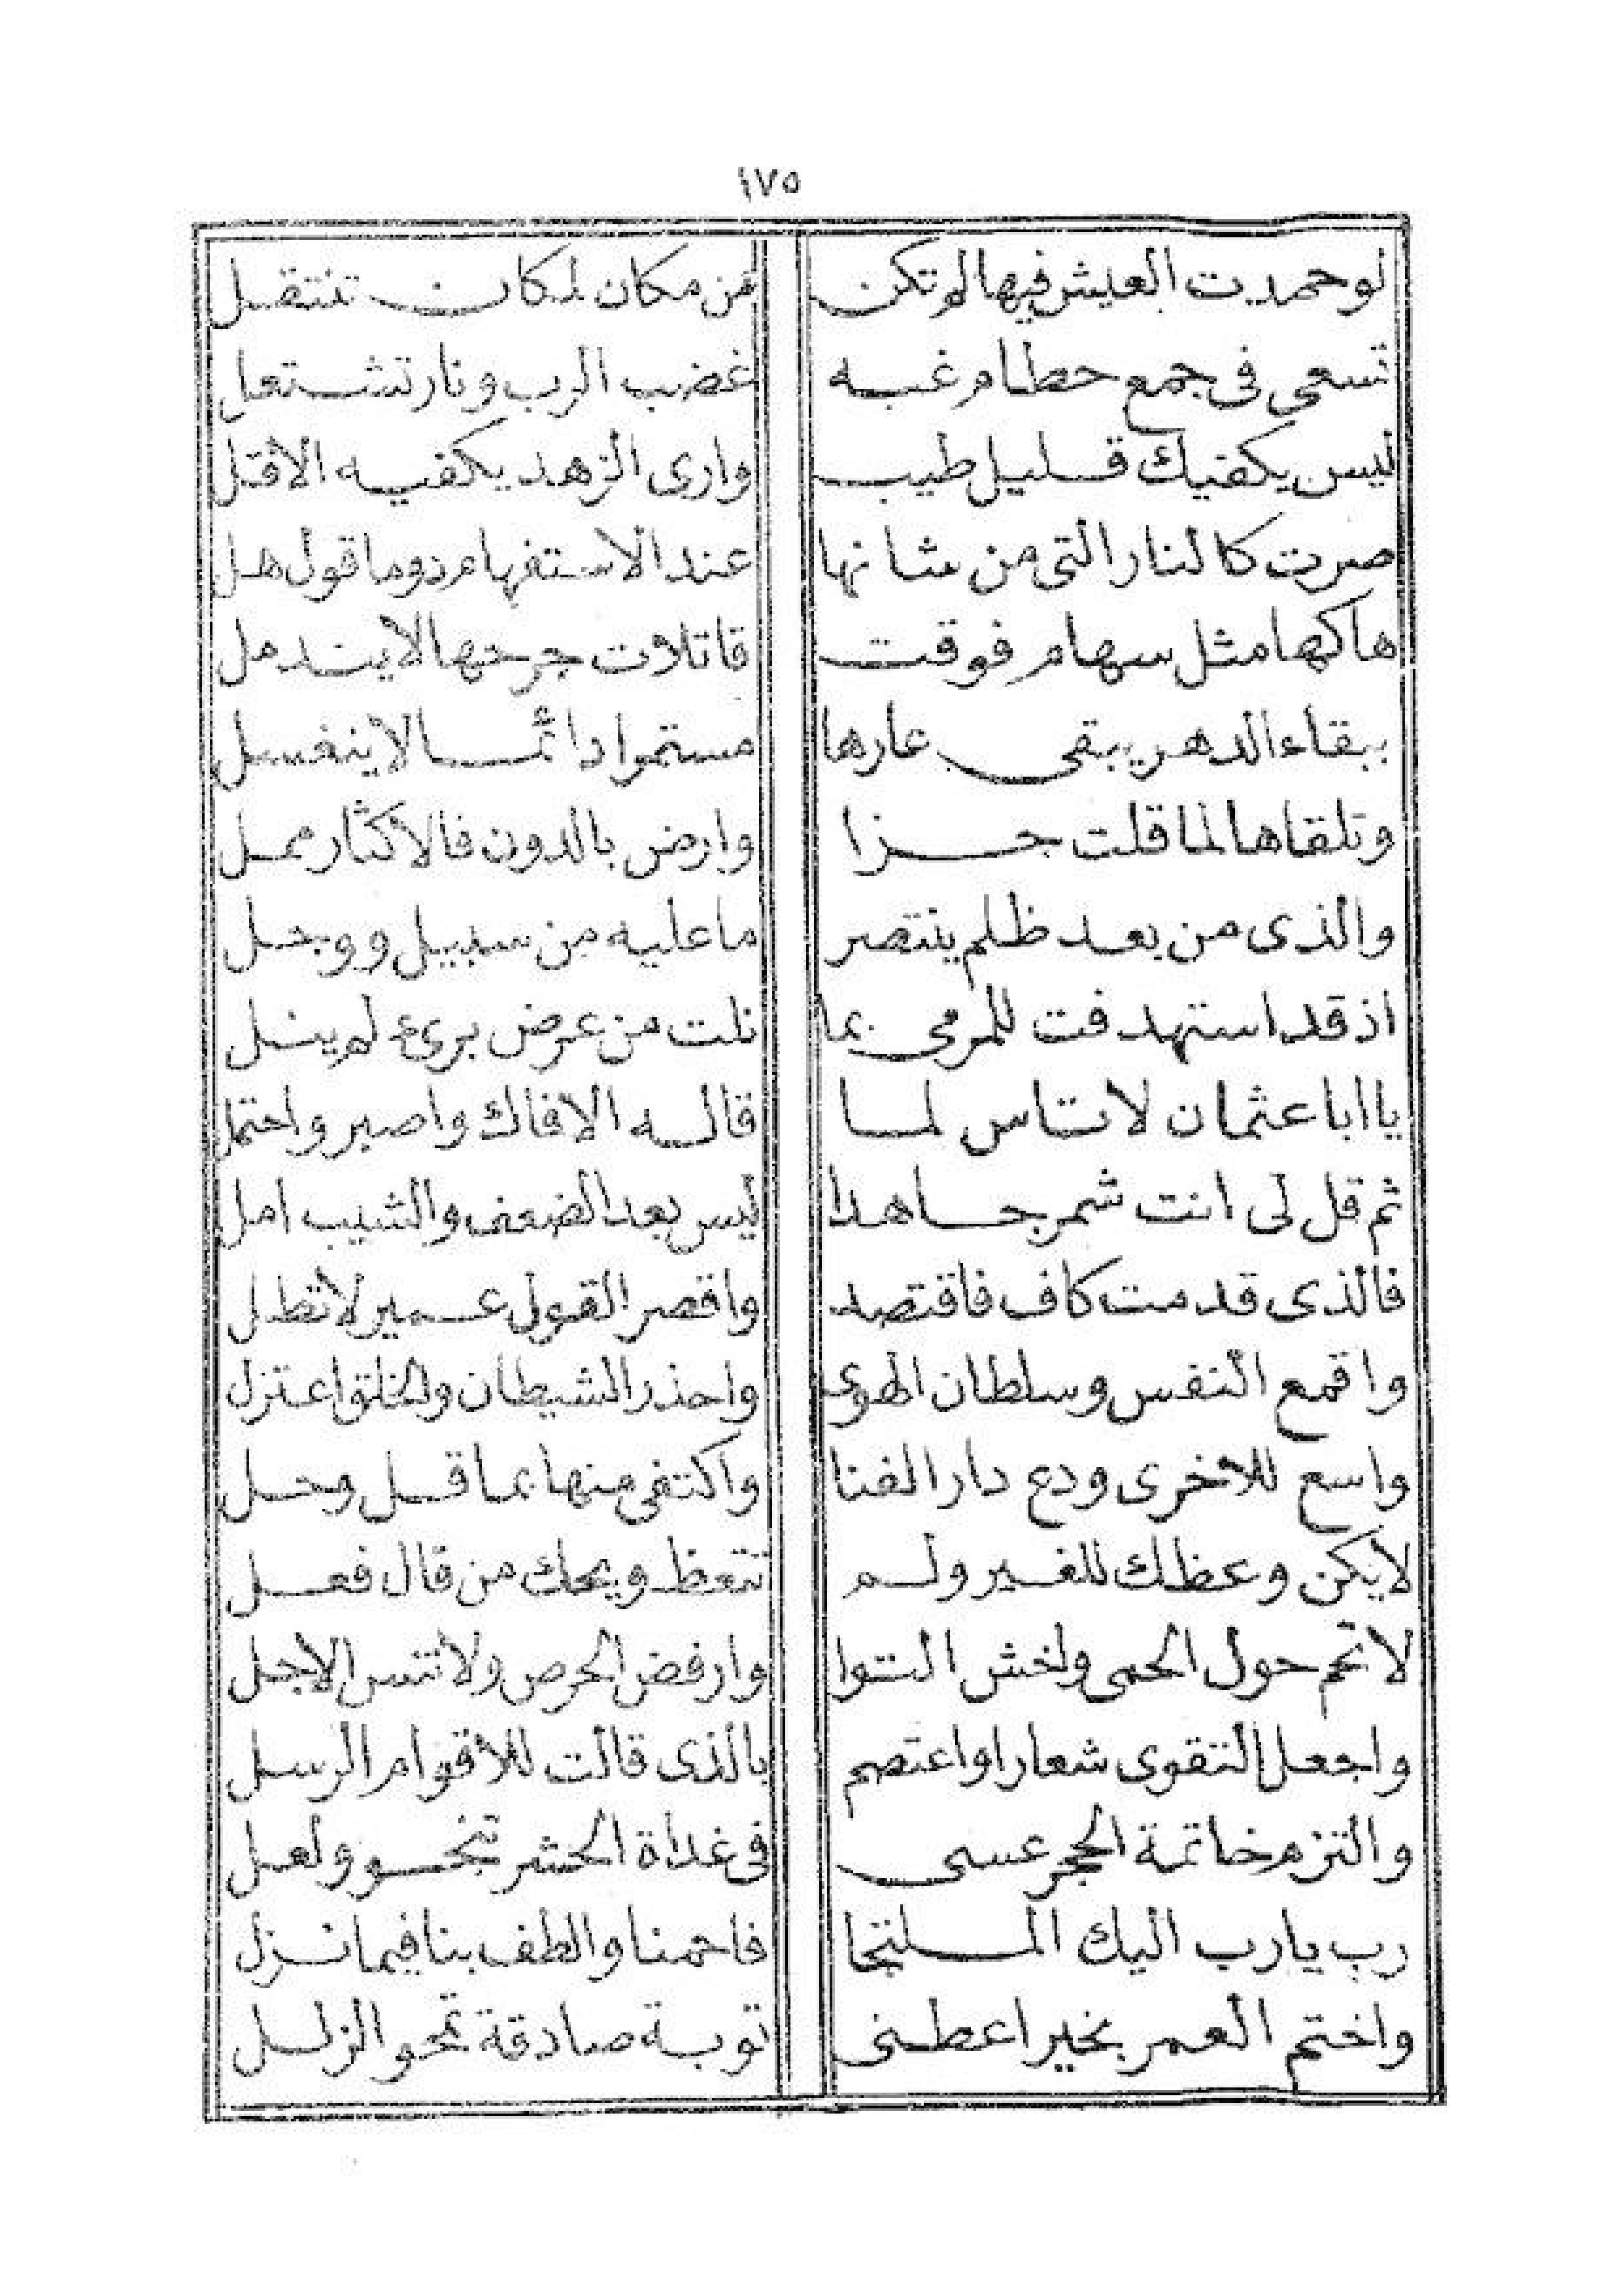 ١٧٥
لو حمدت العيش فيها لم تكن من مكان لمكان تنتقل
تسعى فى جمع حطام غبه غضب الرب ونار تشتعل
ليس يكفيك قليل طيب وارى الزهد يكفيه الاقل
صرت كالنار التى من شانها عند الاستفهام دوما قول هل
هاكها مثل سهام فوقت قاتلات جرحها لا يندمل
ببقاء الدهر يبقى عارها مستمرا دائما لا ينغسل
وتلقاها لما قلت جزا وارض بالدون فالاكثار ممل
والذى من بعد ظلم ينتصر ما عليه من سبيل ووجل
اذ قد استهدفت للمرمى بما نلت من عرض برئ لم ينل
يا ابا عثمان لا تاس لما قاله الافاك واصبر واحتمل
ثم قل لى انت شمر جاهدا ليس بعد الضعف والشيب امل
فالذى قدمت كاف فاقتصد واقصر القول عمير لا تطل
واقمع النفس وسلطان الهوى واحذر الشيطان والخلق اعتزل
واسع للاخرى ودع دار الفنا واكتفى منها بما قل وحل
لا يكن وعظك للغير ولم تتعظ ويحك من قال فعل
لا تحم حول الحمى واخش التوا وارفض الحرص ولا تنس الاجل
واجعل التقوى شعارا واعتصم بالذى قالت للاقوام الرسل
والتزم خاتمة الحجر عسى فى غداة الحشر تنجو ولعل
رب يارب اليك الملتجا فاحمنا والطف بنا فيما نزل
واختم العمر بخير اعطنى توبة صادقة تمحو الزلل